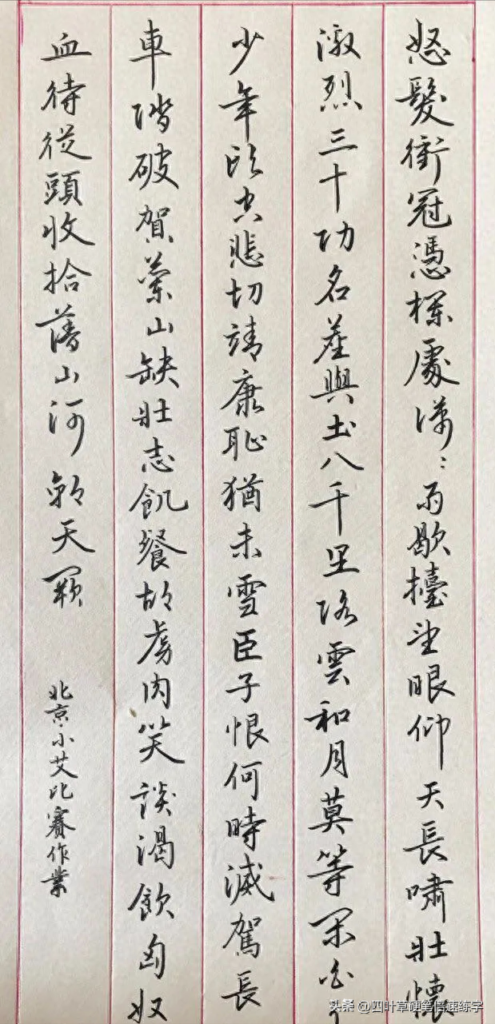 怒髮衝冠憑欄處瀟：雨歇擡望眼仰天長嘯壯懷
激烈三十功名塵與土八千里路雲和月莫等閑白
少年頭空悲切靖康恥猶未雪臣子恨何時滅駕長
車踏破賀蘭山缺壯志飢餐胡虜肉笑談渴飲匈奴
血待從頭收拾舊山河朝天闕
北京小艾比賽作業
头条 @四叶草硬笔慢速练字